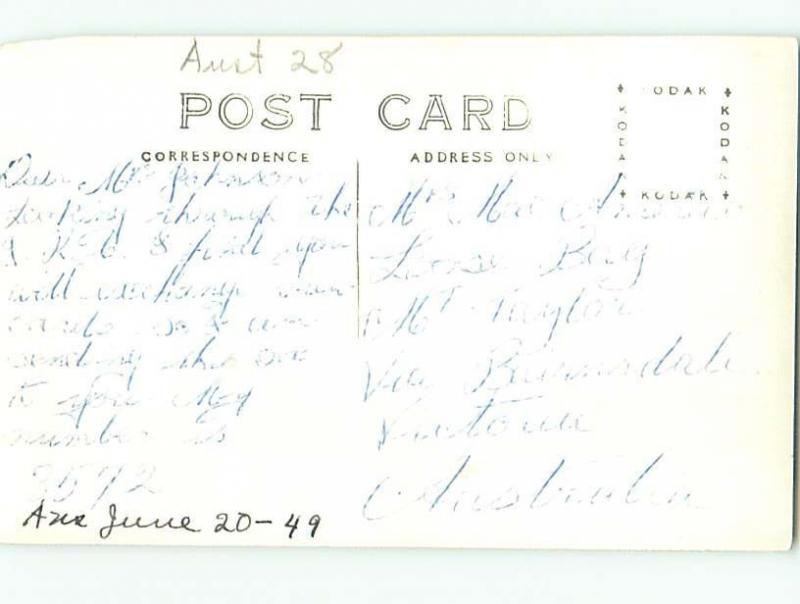 Aust 28
POST CARD
KODAK
KODAK
KODAK
KODAK
CORRESPONDENCE
ADDRESS ONLY
Dear Mrs
looking through the
& find you
will exchange
cards so I am
sending this one
to you My
number is
3572
Ans June 20-49
Mrs Mae
Mt Taylor
Via Bairnsdale
Victoria
Australia